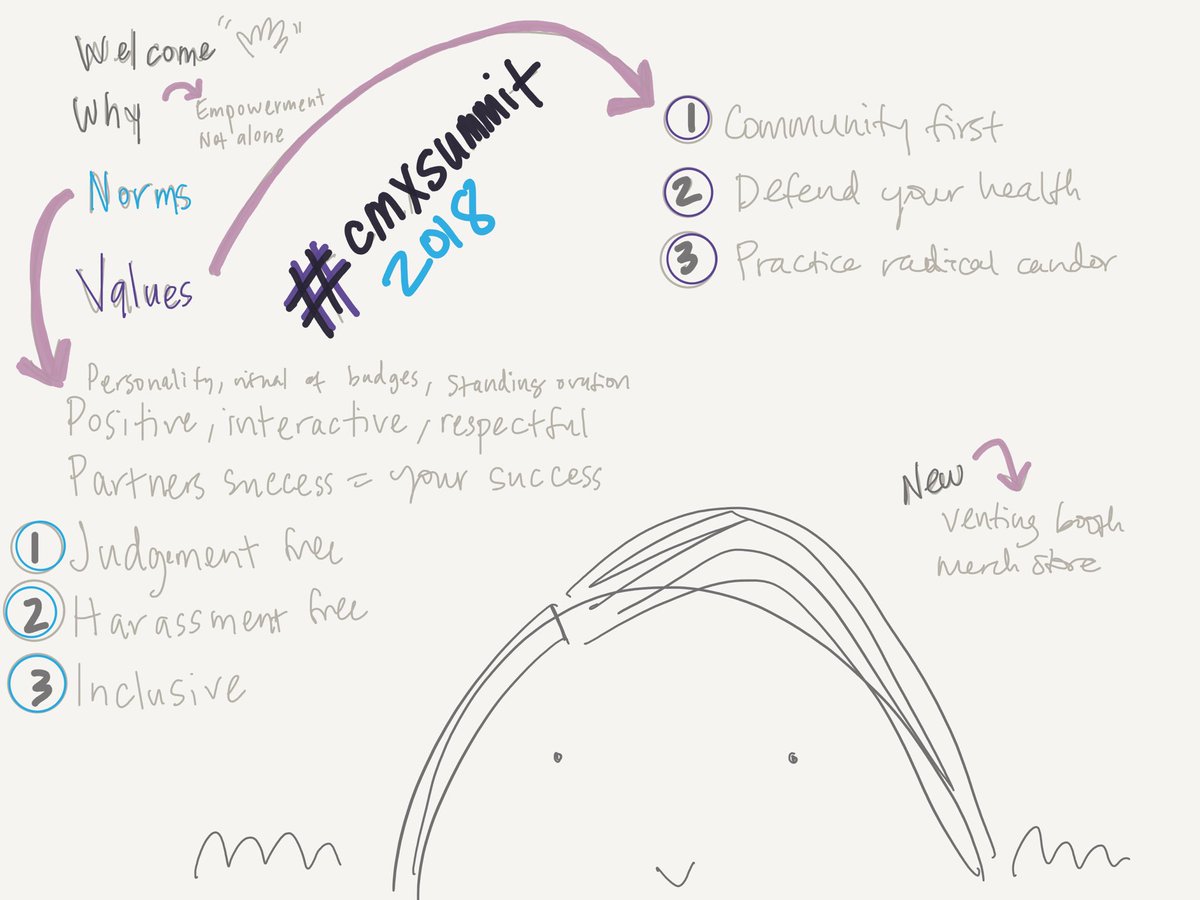 Welcome
Why
Empowerment
Not alone
Norms
Values
#cmxsummit
2018
1 Community first
2 Defend your health
3 Practice radical candor
Personality, visual of badges, standing ovation
Positive, interactive, respectful
Partners success = your success
1 Judgement free
2 Harassment free
3 Inclusive
New
venting booth
merch store